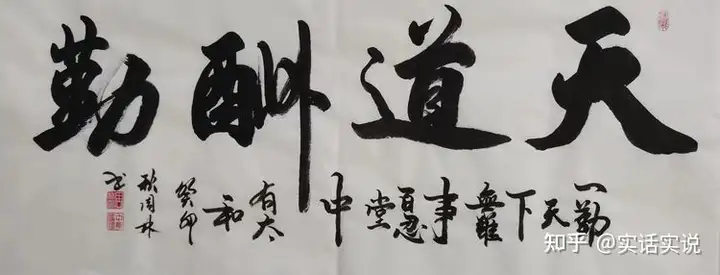 天道酬勤
一勤天下無難事百忍堂中有太和
癸卯秋
书
知乎 @实话实说